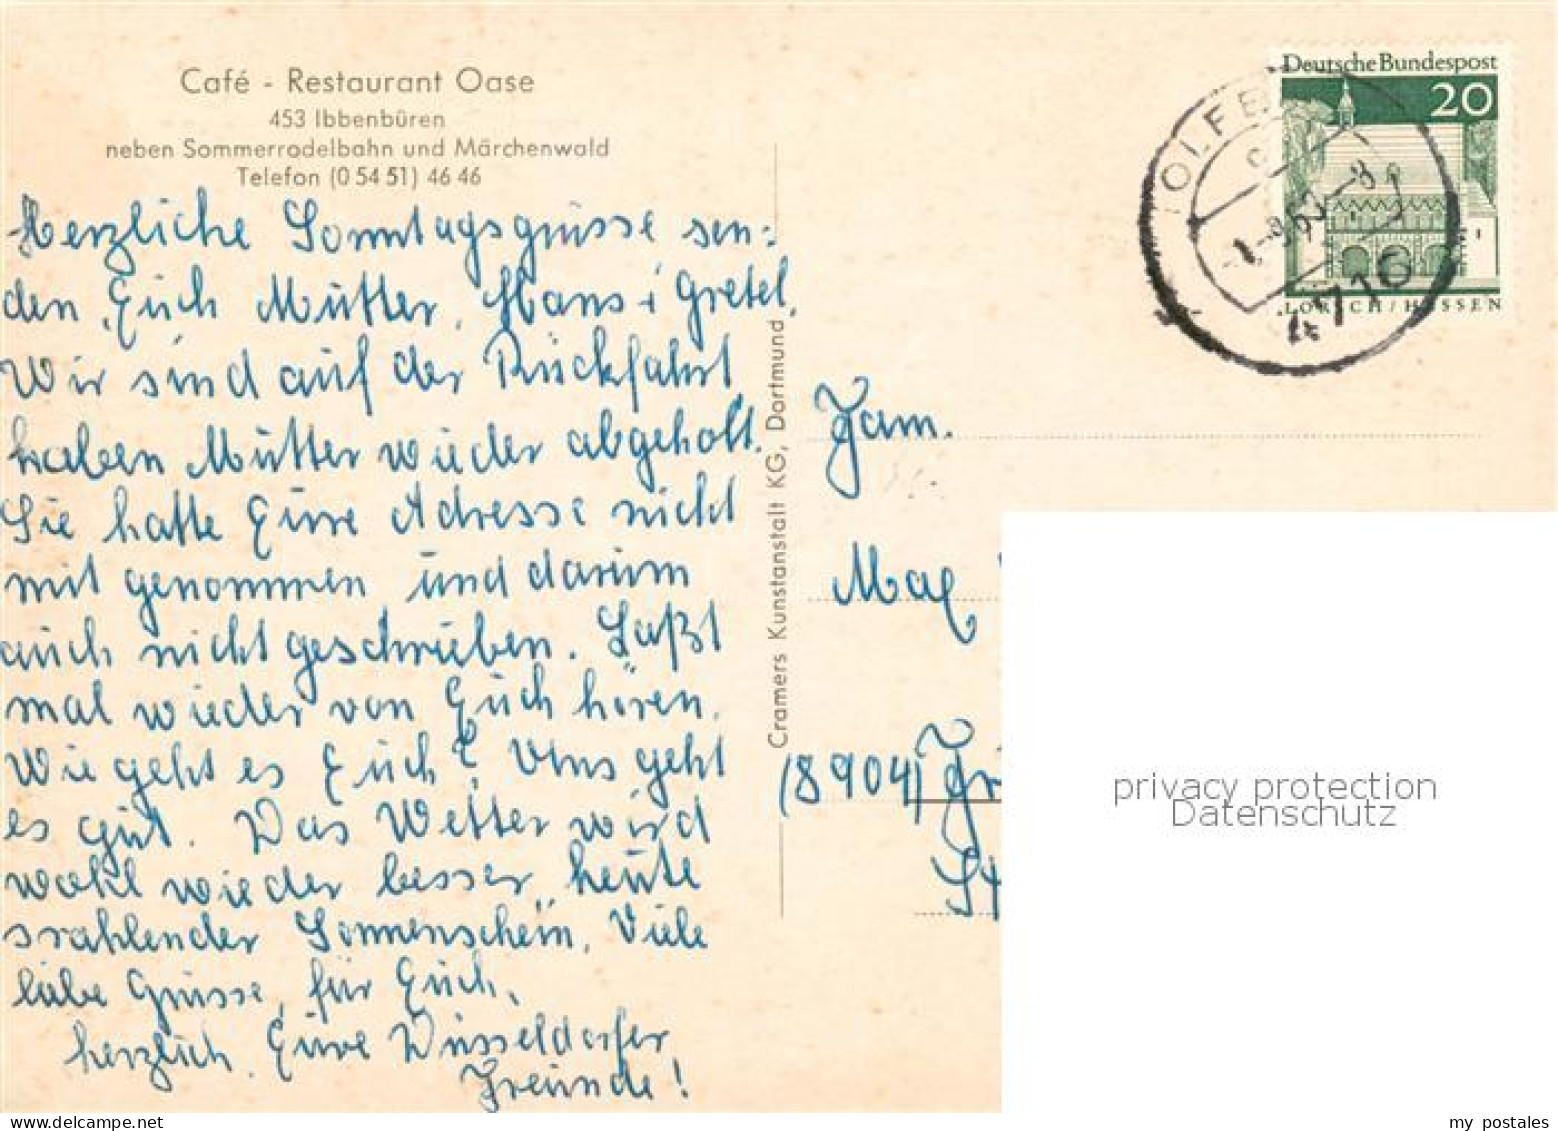 Café - Restaurant Oase
453 Ibbenbüren
neben Sommerrodelbahn und Märchenwald
Telefon (0 54 51) 46 46
Herzliche Sonntagsgrüsse sen-
den Euch Mutter, Hans i Gretel.
Wir sind auf der Rückfahrt
haben Mutter wieder abgeholt.
Sie hatte Eure Adresse nicht
mit genommen und darum
auch nicht geschrieben. Laßt
mal wieder von Euch hören.
Wie geht es Euch? Uns geht
es gut. Das Wetter wird
wohl wieder besser, heute
srahlender Sonnenschein. Viele
liebe Grüsse, für Euch,
herzlich. Eure Düsseldorfer
Freunde!
Cramers Kunstanstalt KG, Dortmund
Deutsche Bundespost
20
LORSCH/HESSEN
OLFE
4716
Fam.
(8904) Fr
privacy protection
Datenschutz
my postales